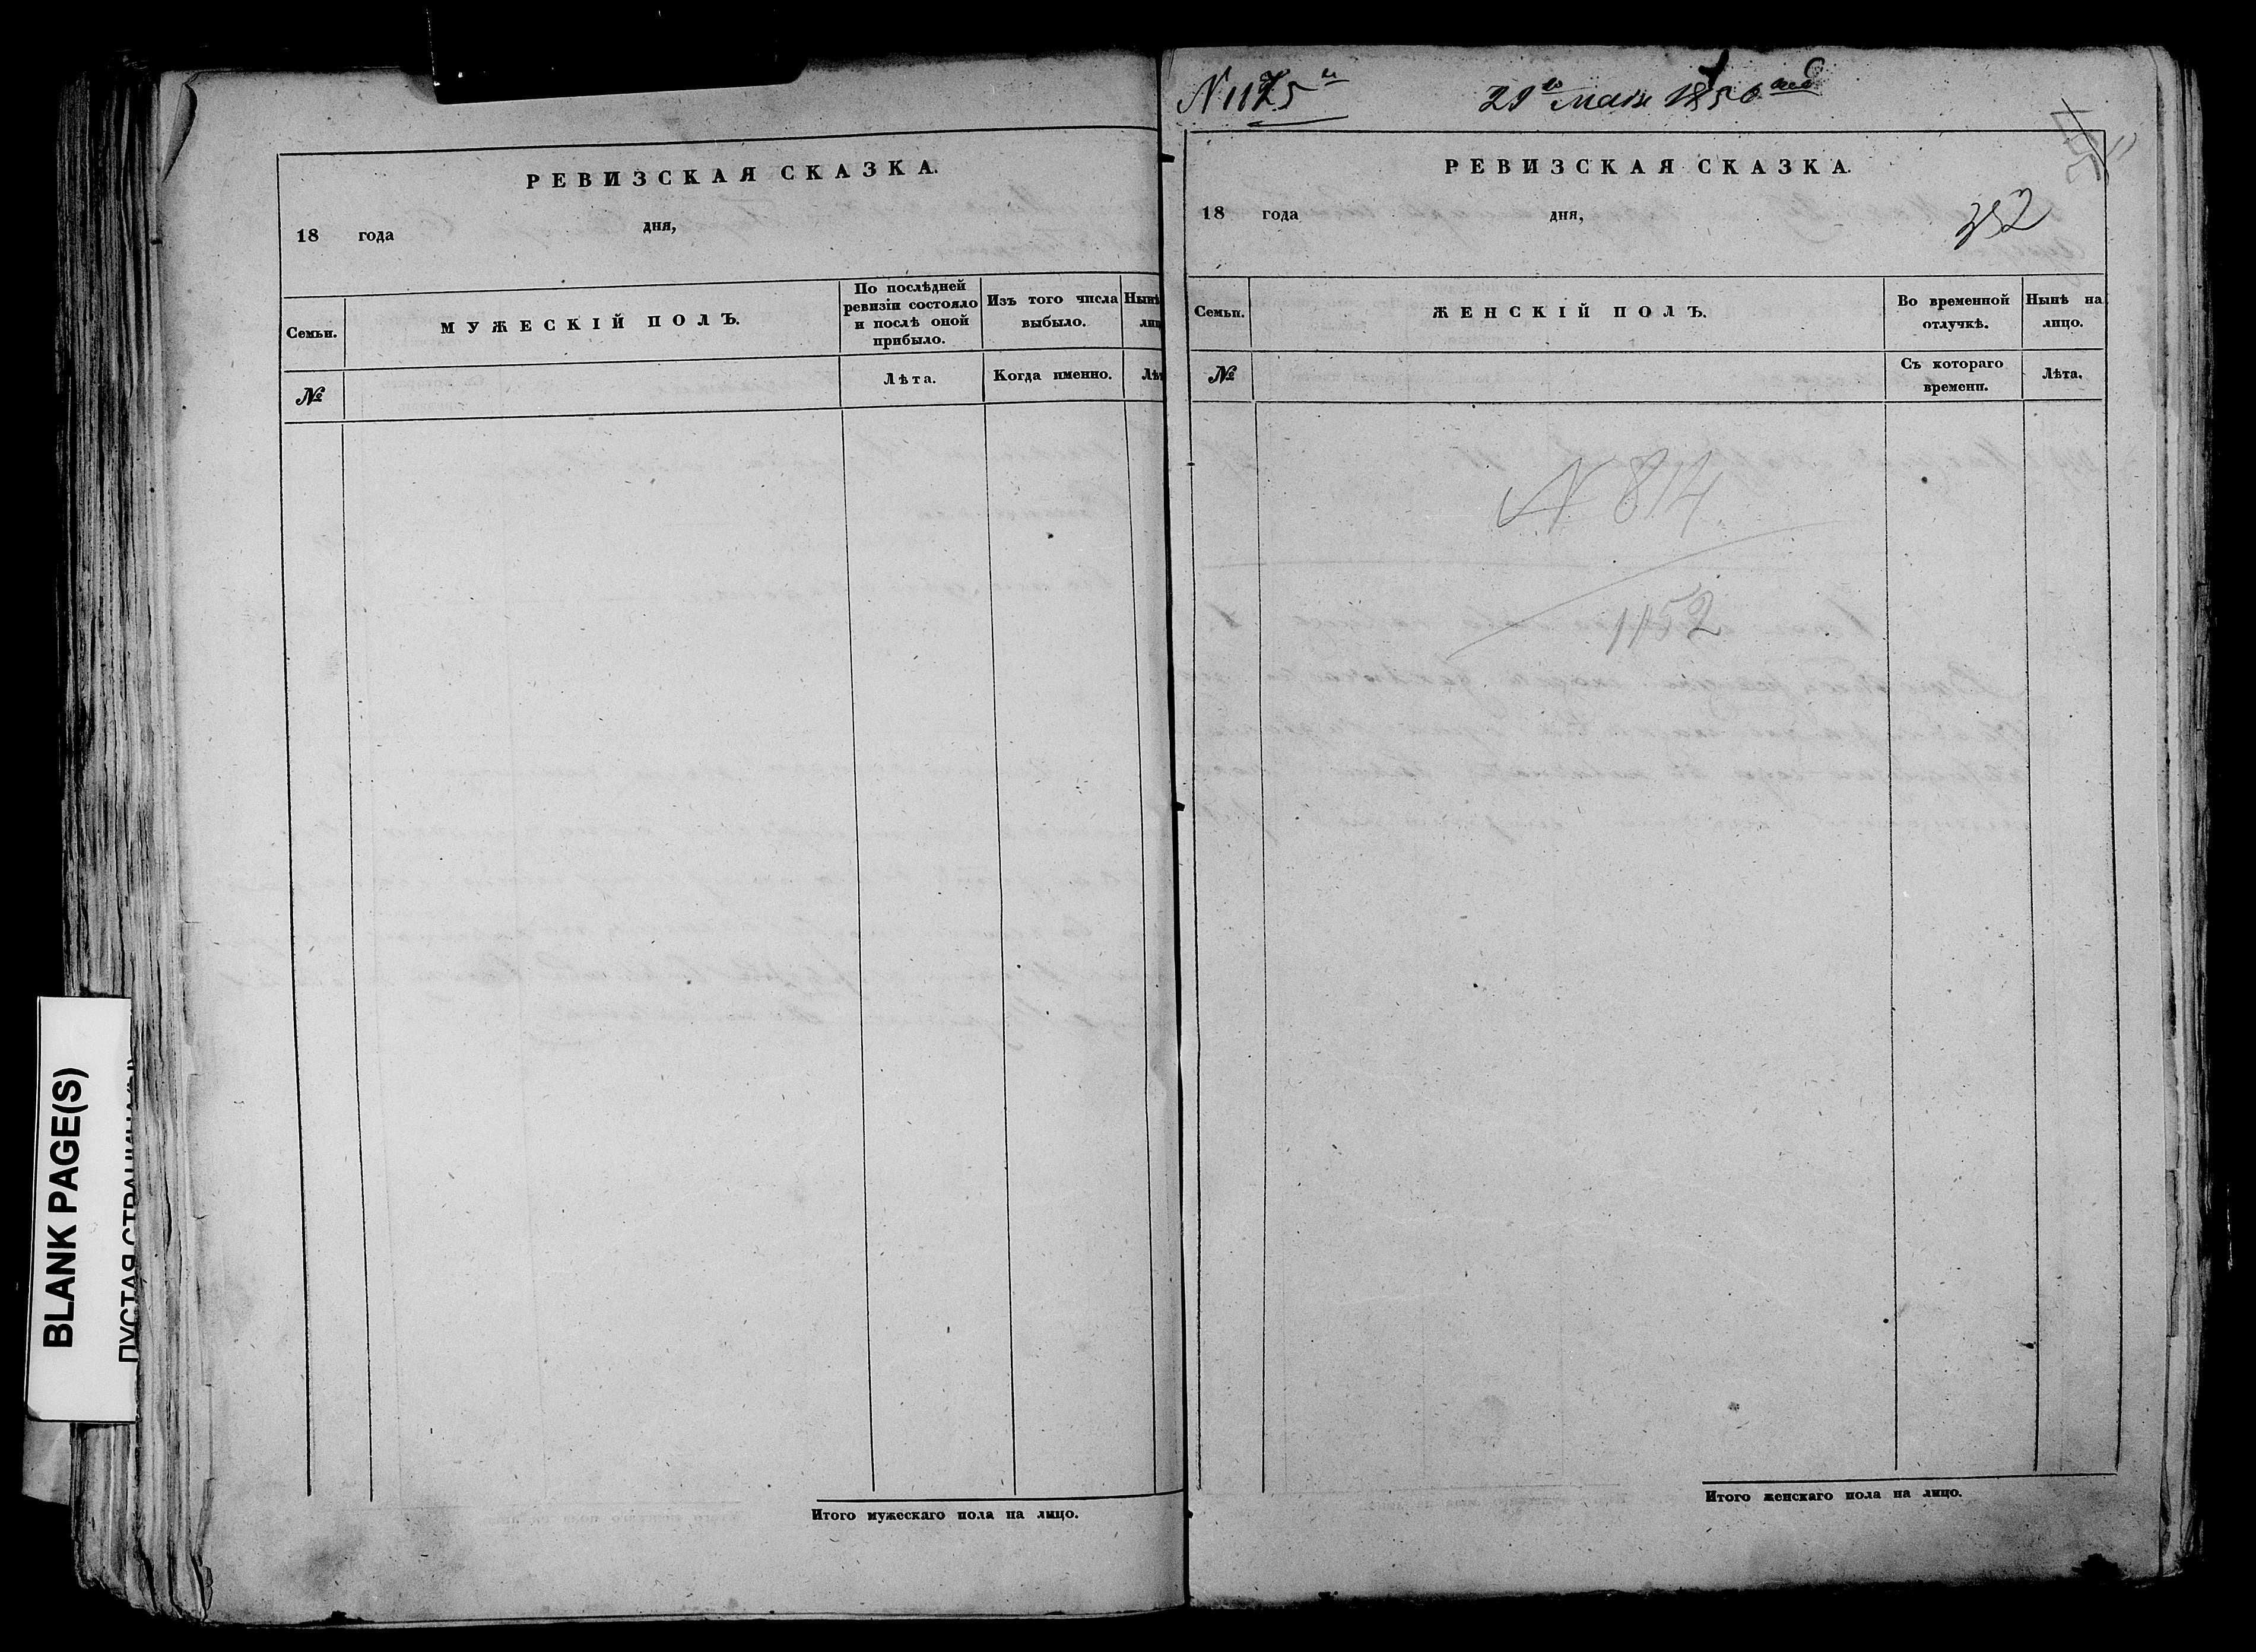 РЕВИЗСКАЯ СКАЗКА.
18 года дня,
Семьи.
МУЖЕСКІЙ ПОЛЪ.
По послѣдней ревизіи состояло и послѣ оной прибыло.
Изъ того числа выбыло.
Нынѣ
лиц
№
Лѣта.
Когда именно.
Лѣт
Итого мужескаго пола на лицо.
N 1175
29го Мая 1850
РЕВИЗСКАЯ СКАЗКА.
18 года дня,
352
Семьи.
ЖЕНСКІЙ ПОЛЪ.
Во временной отлучкѣ.
Нынѣ на лицо.
№
Съ котораго времени.
Лѣта.
N 814
1152
Итого женскаго пола на лицо.
BLANK PAGE(S)
ПУСТАЯ СТРАНИЦА(Ы)